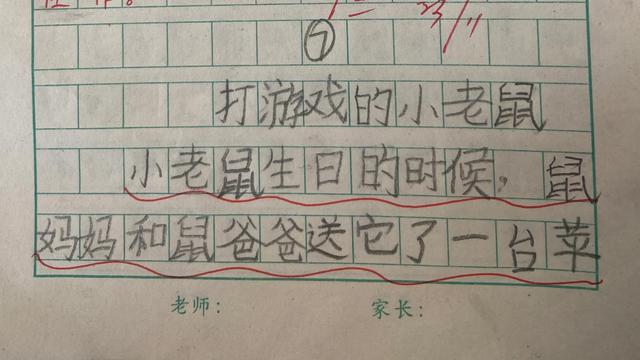 ⑦
打游戏的小老鼠
小老鼠生日的时候，鼠
妈妈和鼠爸爸送它了一台苹
老师： 家长：